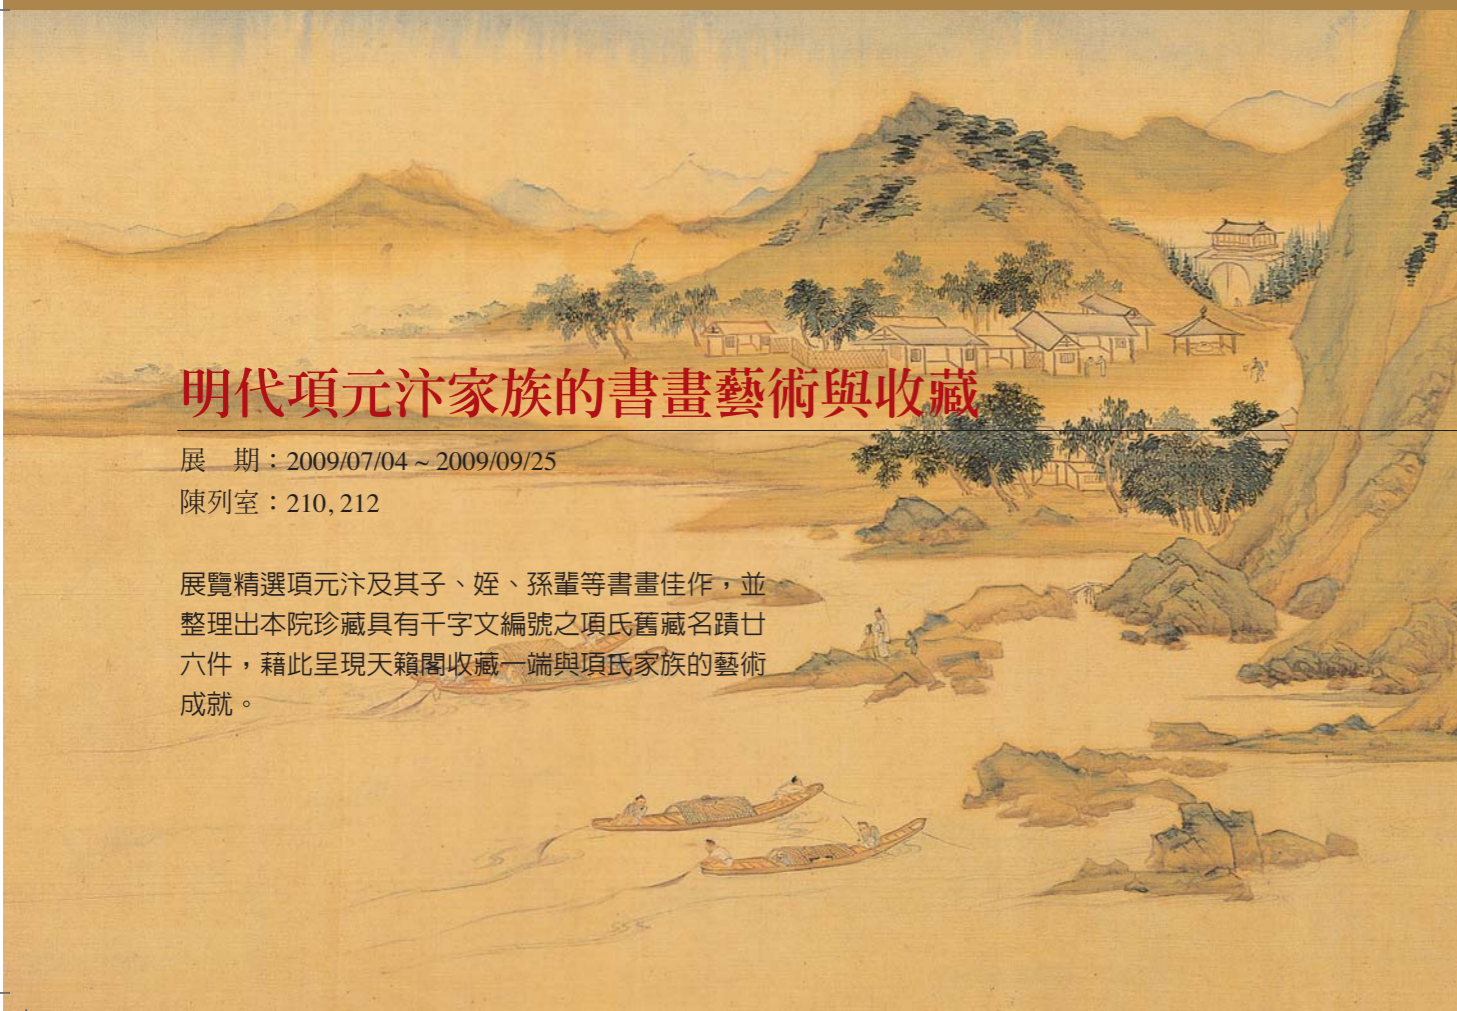 明代項元汴家族的書畫藝術與收藏
展　期：2009/07/04 ~ 2009/09/25
陳列室：210, 212
展覽精選項元汴及其子、姪、孫輩等書畫佳作，並
整理出本院珍藏具有千字文編號之項氏舊藏名蹟廿
六件，藉此呈現天籟閣收藏一端與項氏家族的藝術
成就。